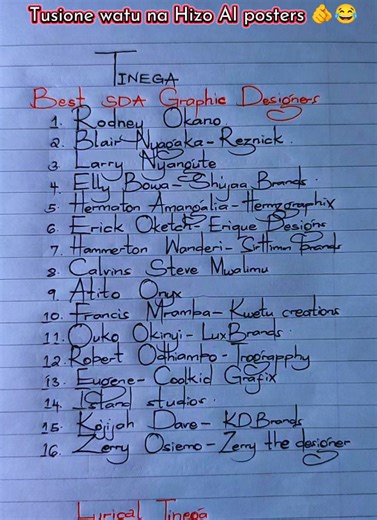 Tusione watu na Hizo AI posters 🫵😂
TINEGA
Best SDA Graphic Designers
1. Rodney Okano.
2. Blair Nyagaka - Reznick.
3. Larry Nyangute
4. Elly Bowa - Shujaa Brands.
5. Hermaton Amangalia - Hermzgraphix
6. Erick Oketch - Erique Designs
7. Hammerton Wanderi - Brands
8. Calvins Steve Mwalimu
9. Atito Onyx
10. Francis Mramba - Kwetu creations
11. Ouko Okinyi - Lux Brands.
12. Robert Odhiambo -
13. Eugene - Coolkid Grafix
14. Island studios.
15. Kojjah Dave - KD Brands
16. Zerry Osiemo - Zerry the designer
Lyrical Tinega